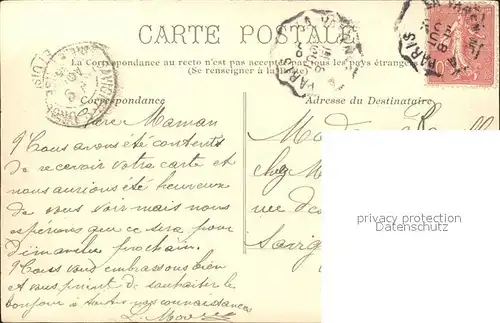 CARTE POSTALE
La Correspondance au recto n'est pas acceptée par tous les pays étrangers
(Se renseigner à la Poste)
Correspondance
Adresse du Destinataire
Chère Maman
Nous avons été contents
de recevoir votre carte et
nous aurions été heureux
de vous voir mais nous
espérons que ce sera pour
dimanche prochain.
Nous vous embrassons bien
et vous prient de souhaiter le
bonjour à toutes nos connaissances
L.
chez M
rue de
Savig
privacy protection
Datenschutz
PARIS
PARIS